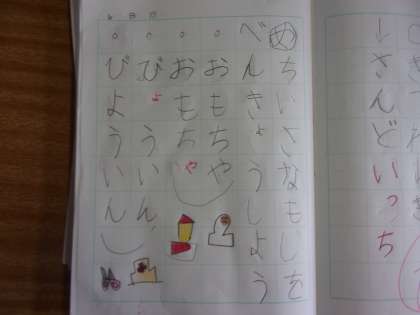 さんどいっち
めちいさなもじを
べんきょうしよう
。おもちや
。おもちゃ
。びょういん
。びよういん